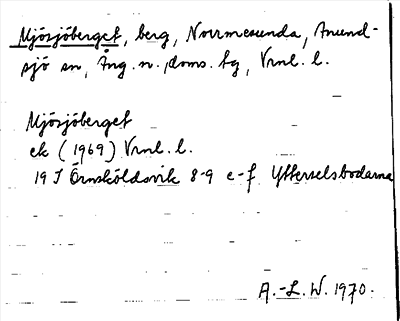 Mjösjöberget, berg, Norrmesunda, Anund-
sjö sn, Ång. n. doms. tg, Vrnl. l.
Mjösjöberget
ek (1969) Vrnl. l.
19 I Örnsköldsvik 8-9 e-f Ytterselsbodarna
A.-L. W. 1970.